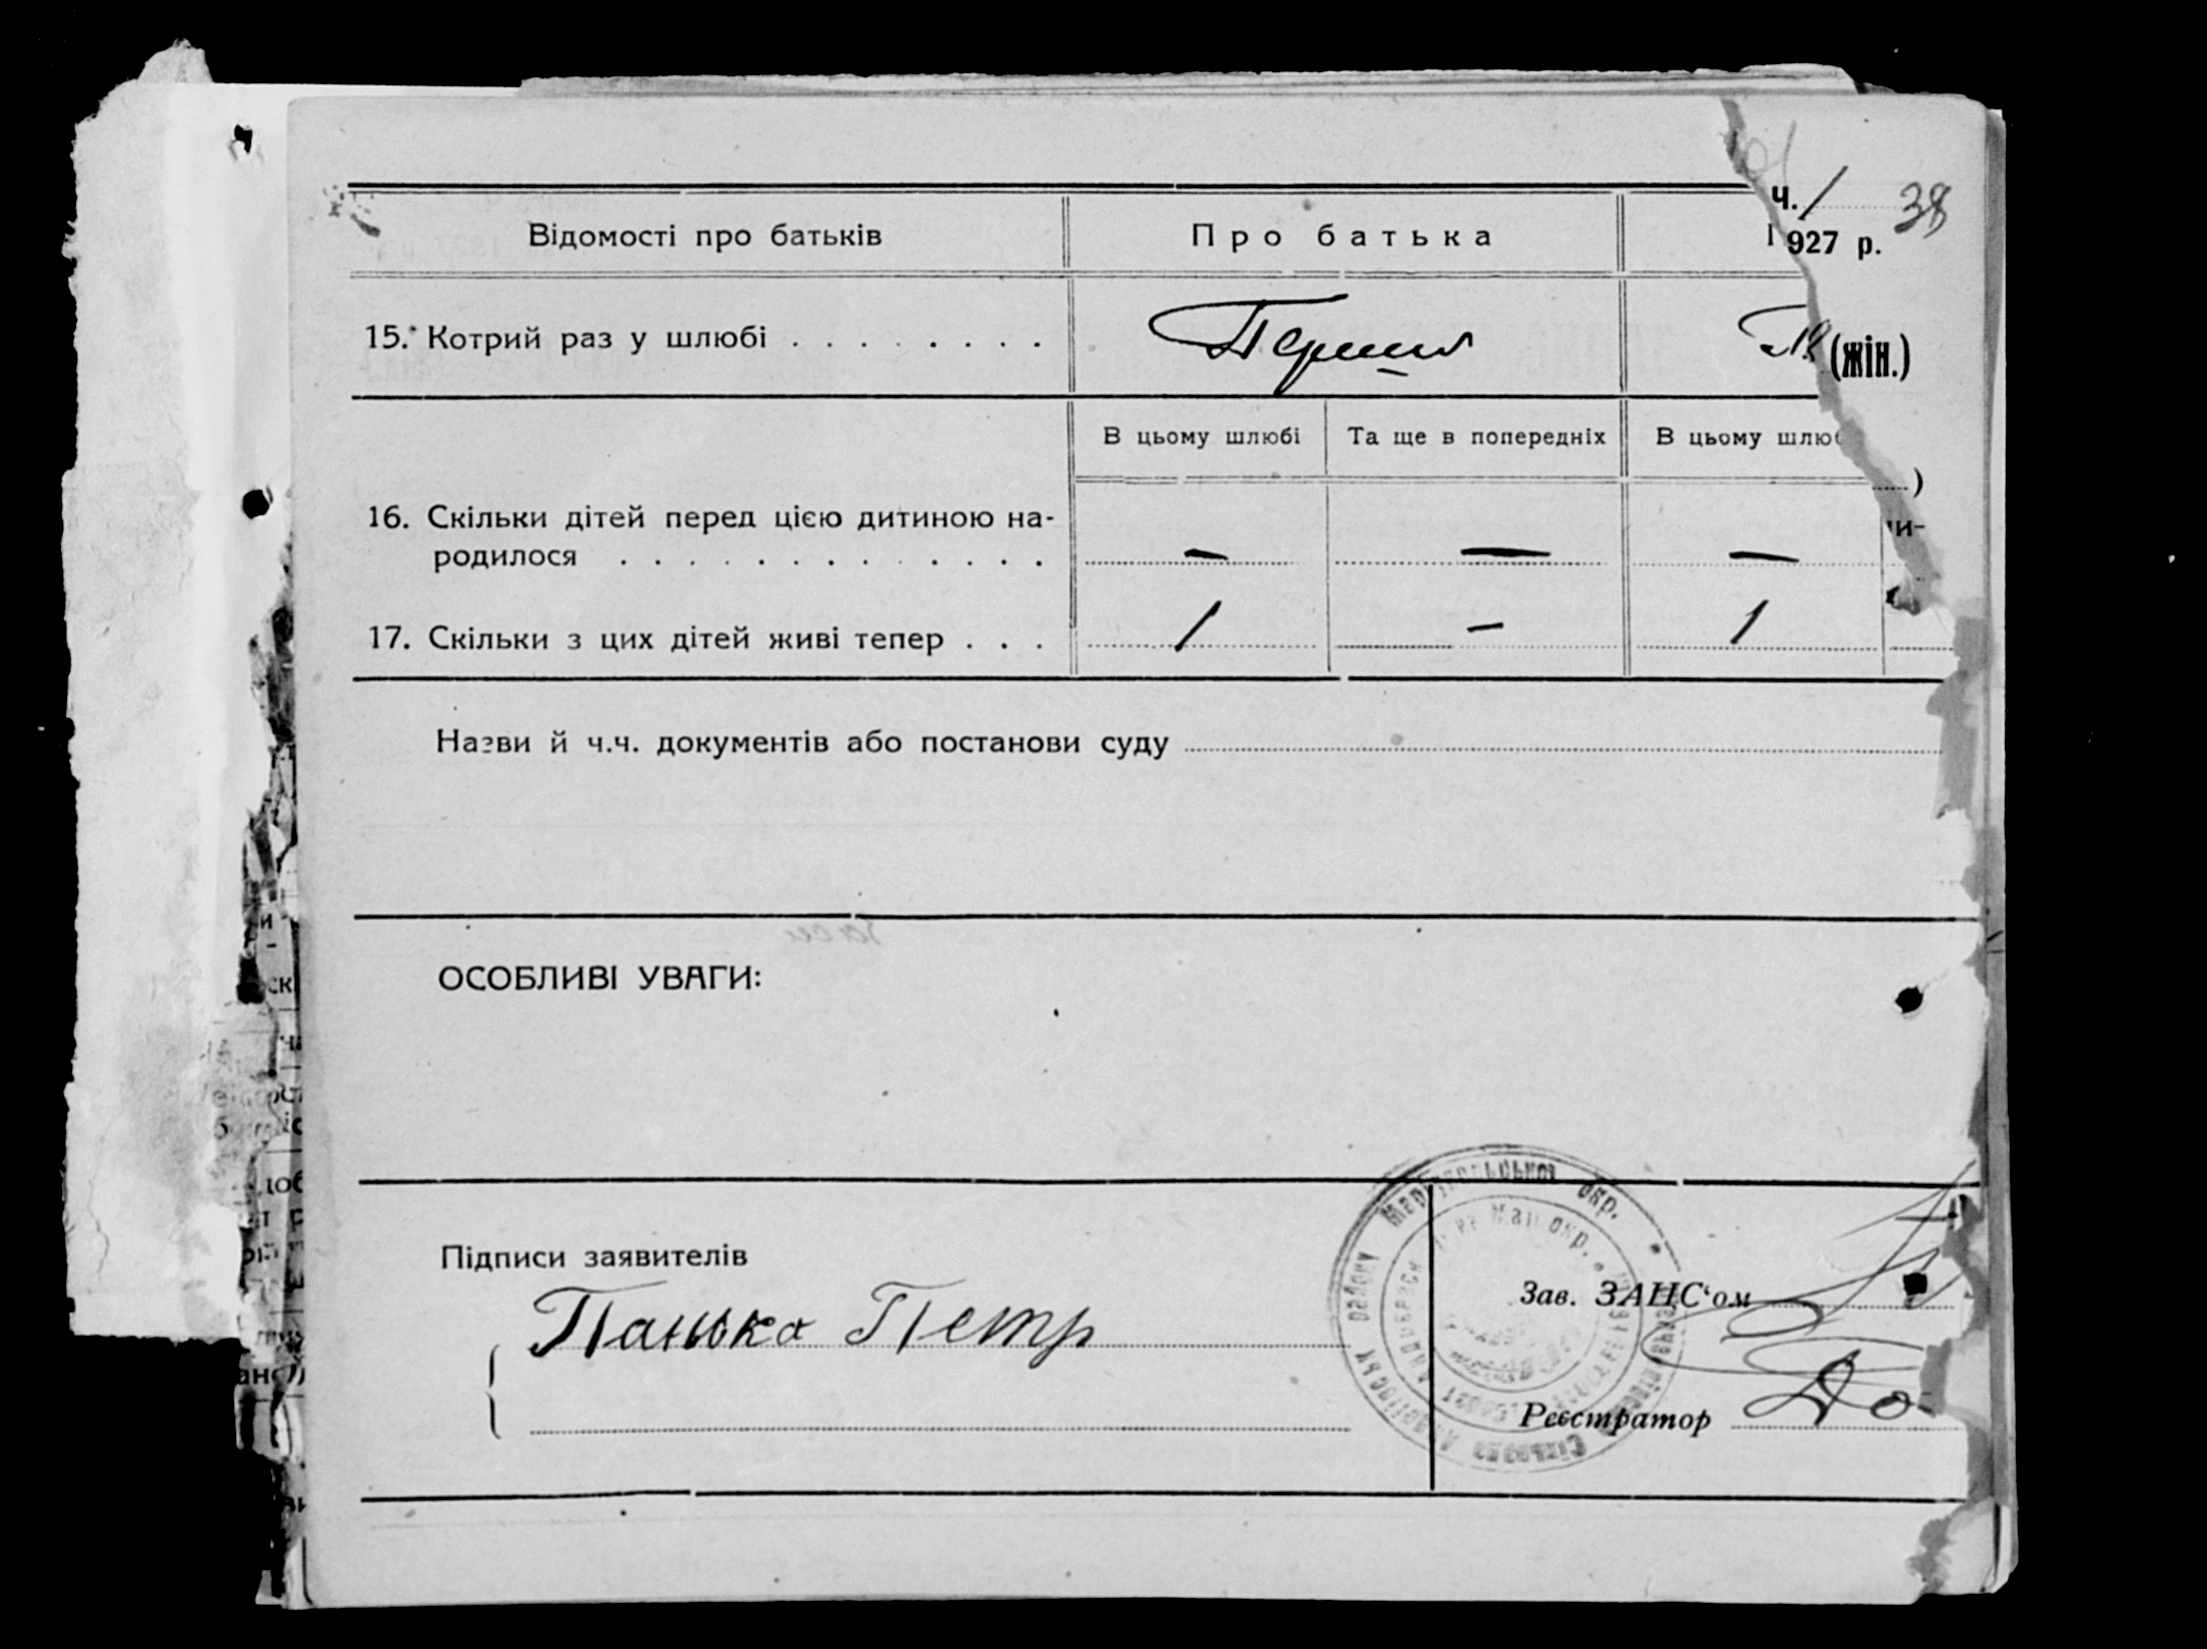 ч. / 38
Відомості про батьків Про батька 1927 р.
15. Котрий раз у шлюбі . . . . . . . . (жін.)
В цьому шлюбі Та ще в попередніх В цьому шлюб
16. Скільки дітей перед цією дитиною на-
родилося . . . . . . . . . . . . . — — —
17. Скільки з цих дітей живі тепер . . . 1 — 1
Назви й ч.ч. документів або постанови суду
ОСОБЛИВІ УВАГИ:
Підписи заявителів
Зав. ЗАНС'ом
Панька Петр
Реєстратор До